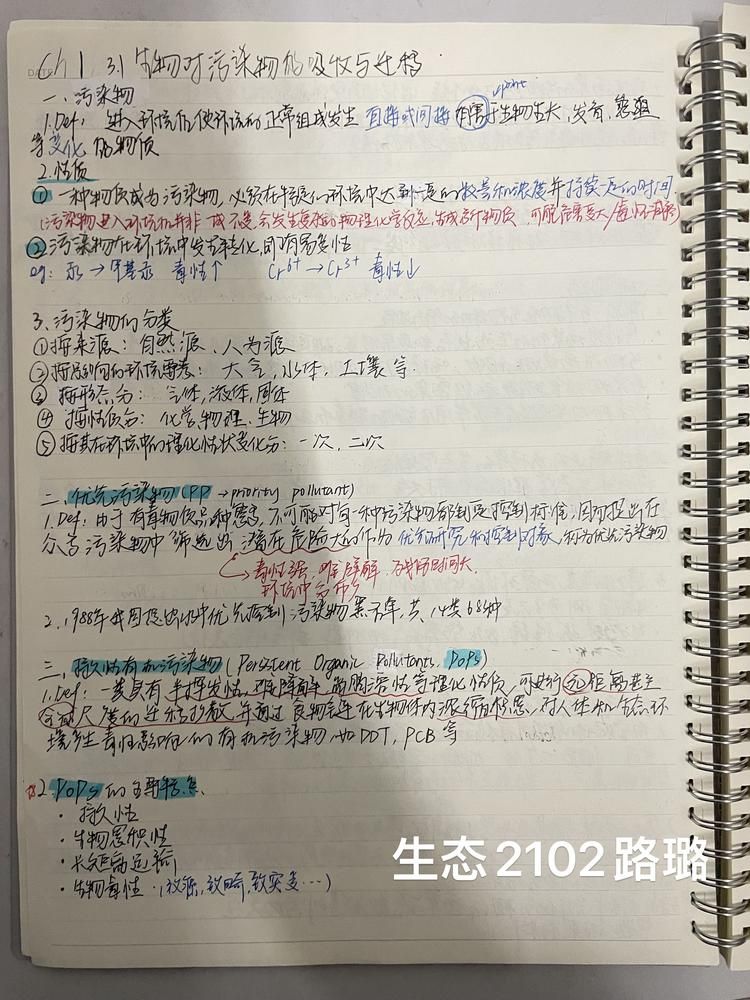 Ch 1 3.1 生物对污染物的吸收与迁移
一、污染物
1.Def: 进入环境后使环境的正常组成发生 直接或间接 有害于生物生长,发育,繁殖
point
等变化 的物质
2.性质
① 一种物质成为污染物,必须在特定的环境中达到一定的数量和浓度并持续一定的时间.
(污染物进入环境后并非一成不变,会发生复杂的物理化学反应,生成新物质,可能危害更大/毒性消除)
② 污染物在环境中发生转化,即有易变性
eg: 汞→甲基汞 毒性↑ Cr6+→Cr3+ 毒性↓
3.污染物的分类
①按来源:自然源、人为源
②按影响的环境要素:大气,水体,土壤等.
③按形态分:气体,液体,固体
④按性质分:化学,物理、生物
⑤按其在环境中的理化性状变化分:一次,二次
二、优先污染物(PP →priority pollutant)
1.Def:由于有毒物质品种繁多,不可能对每一种污染物都制定控制标准,因而提出在
众多污染物中筛选出潜在危险大的作为优先研究和控制对象,称为优先污染物
毒性强 难降解 残留时间长
环境中分布广
2.1988年我国提出水中优先控制污染物黑名单,共14类68种
三、持久性有机污染物(Persistent Organic Pollutants, POPs)
1.Def:一类具有半挥发性,难降解,高脂溶性等理化性质,可进行远距离甚至
全球尺度的迁移扩散,并通过食物链在生物体内浓缩积累,对人体和生态环
境产生毒性影响的有机污染物,如DDT,PCB等
2.POPs的主要特点
·持久性
·生物累积性
·长距离运输
·生物毒性.(致癌,致畸,致突变…)
生态2102路璐